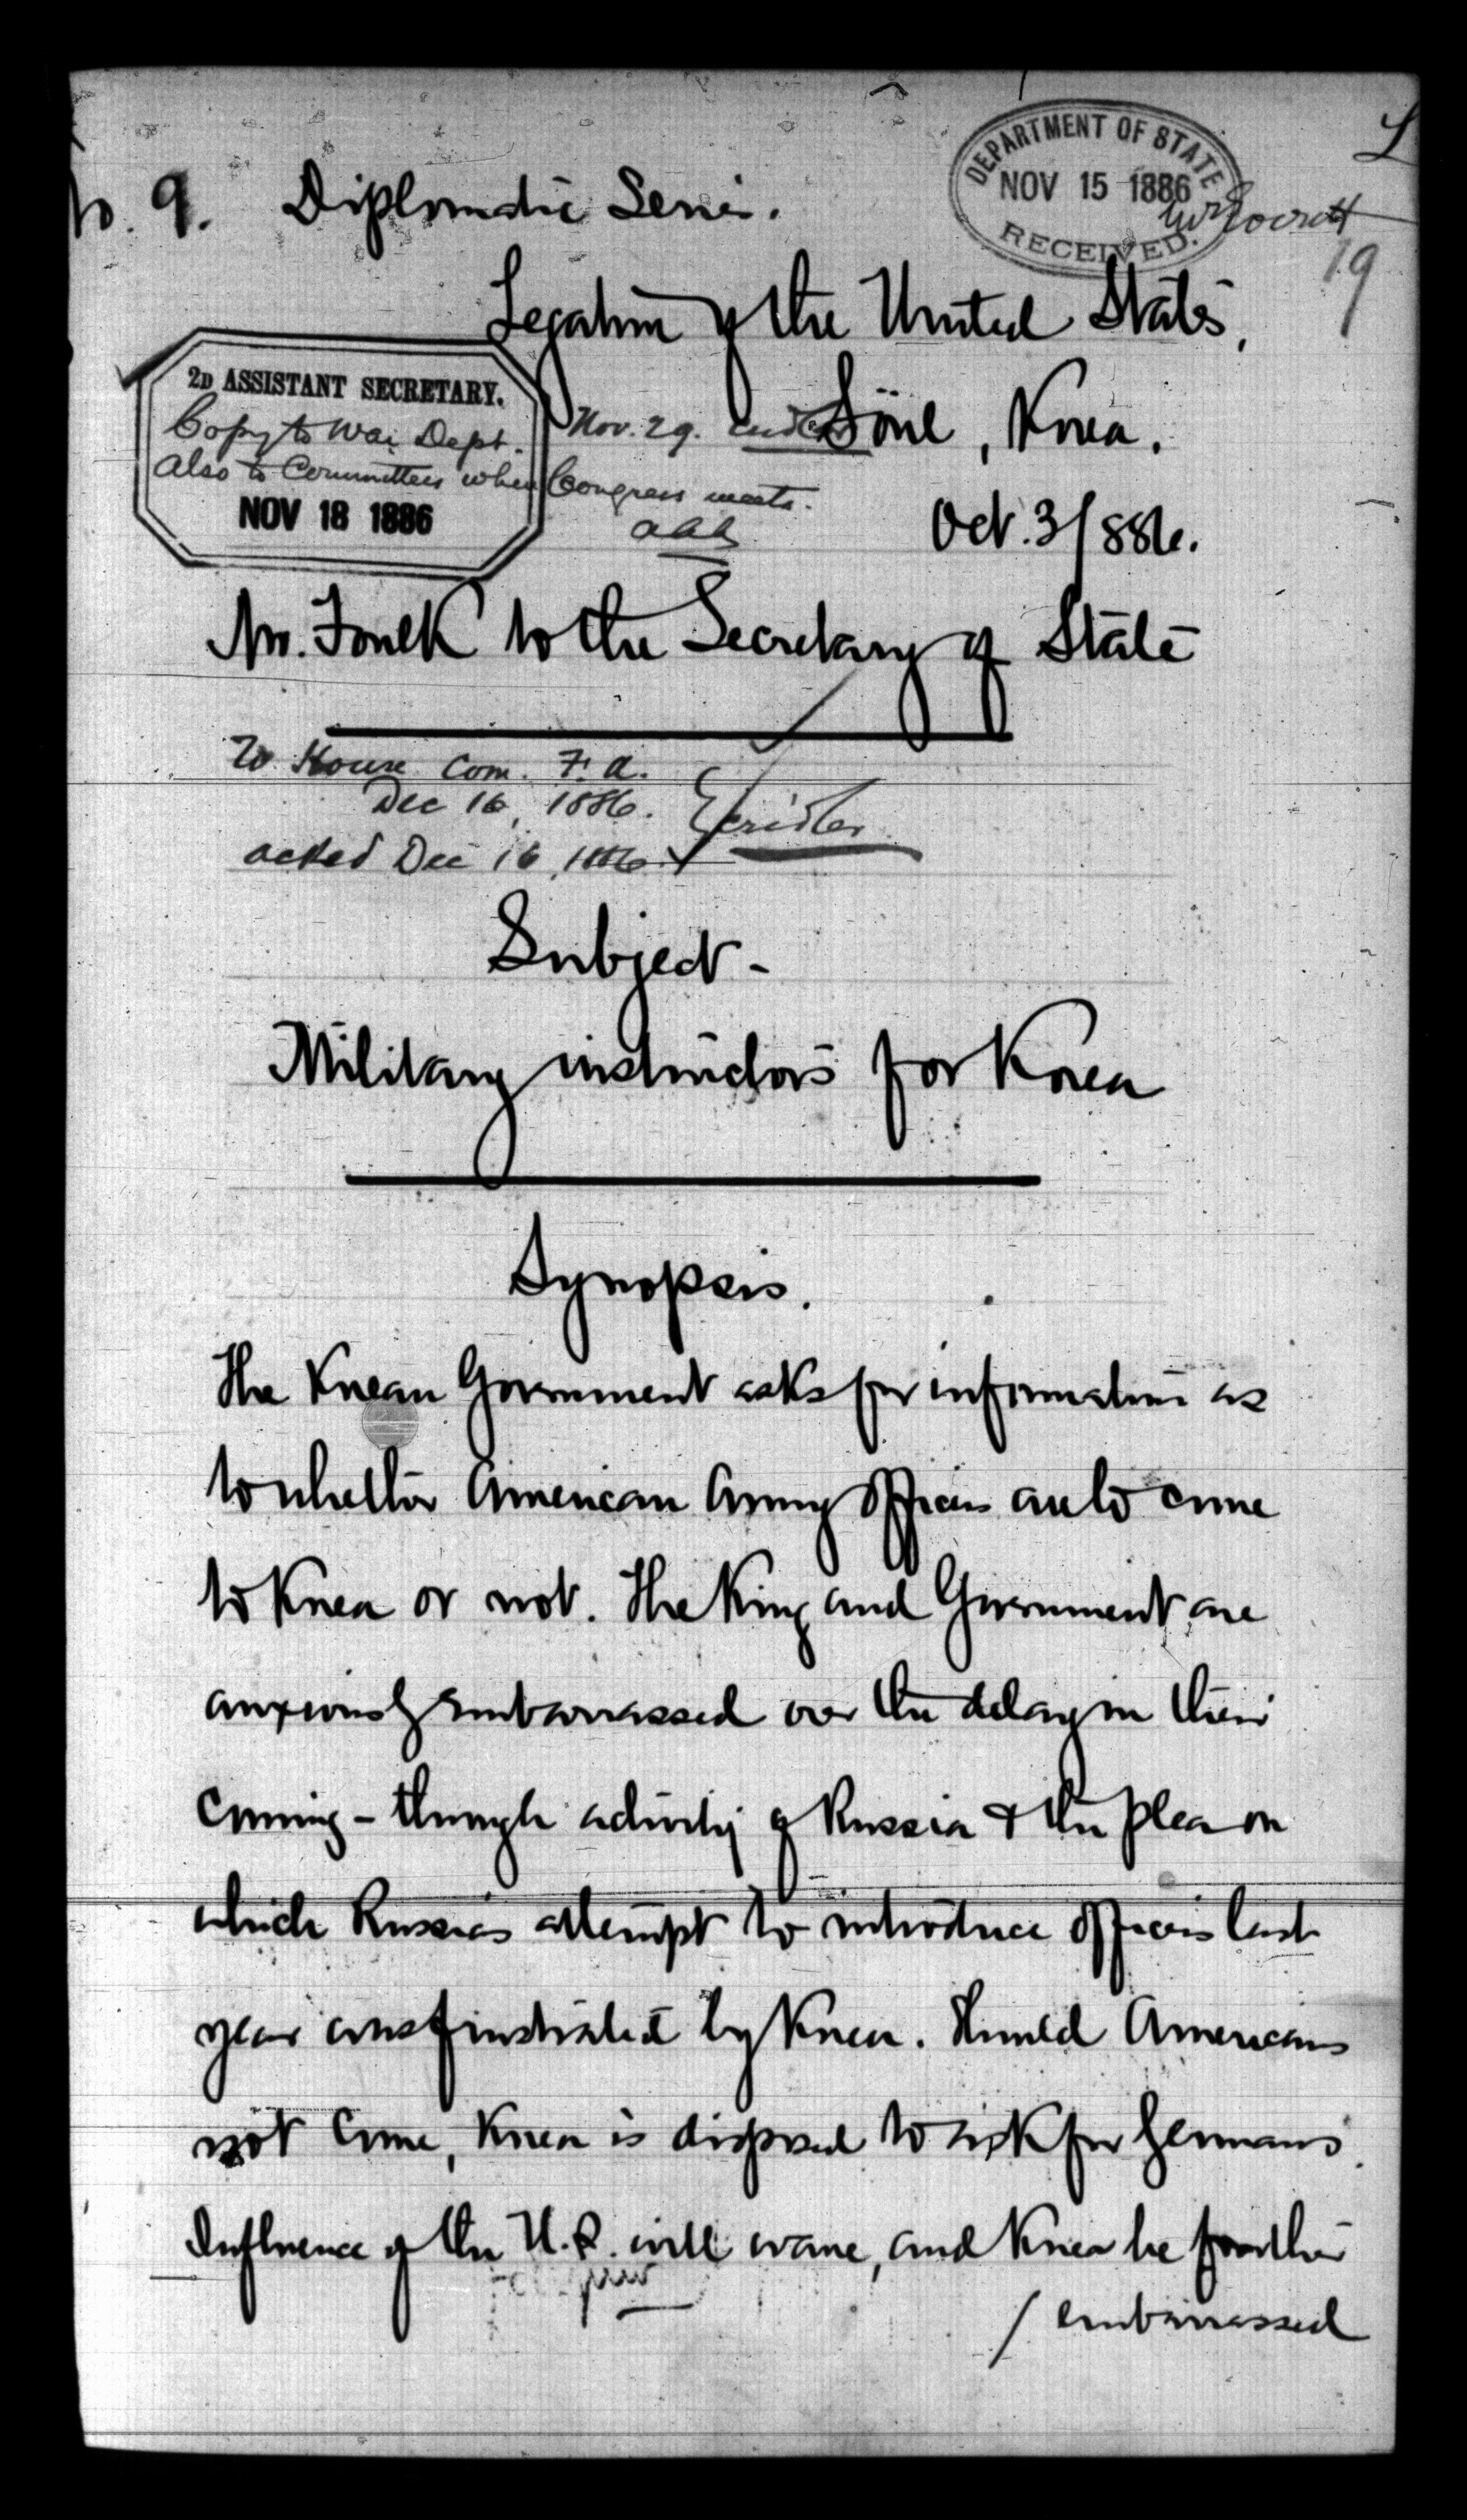 No. 9. Diplomatic Series.
DEPARTMENT OF STATE
NOV 15 1886
RECEIVED.
19
Legation of the United States,
Söul, Korea.
Oct. 3/886.
2D ASSISTANT SECRETARY.
Copy to War Dept. Nov. 29.
Also to Committees when Congress meets.
NOV 18 1886
aaa
Mr. Foulk to the Secretary of State
To House Com. F. A.
Dec 16, 1886.
acked Dec 16, 1886
Subject -
Military instructors for Korea
Synopsis.
The Korean Government asks for information as
to whether American Army officers are to come
to Korea or not. The King and Government are
anxiously embarrassed over the delay in their
coming - through activity of Russia & the plea on
which Russia's attempt to introduce officers last
year was frustrated by Korea. Should Americans
not come, Korea is disposed to ask for Germans.
Influence of the U.S. will wane, and Korea be further
/ embarrassed